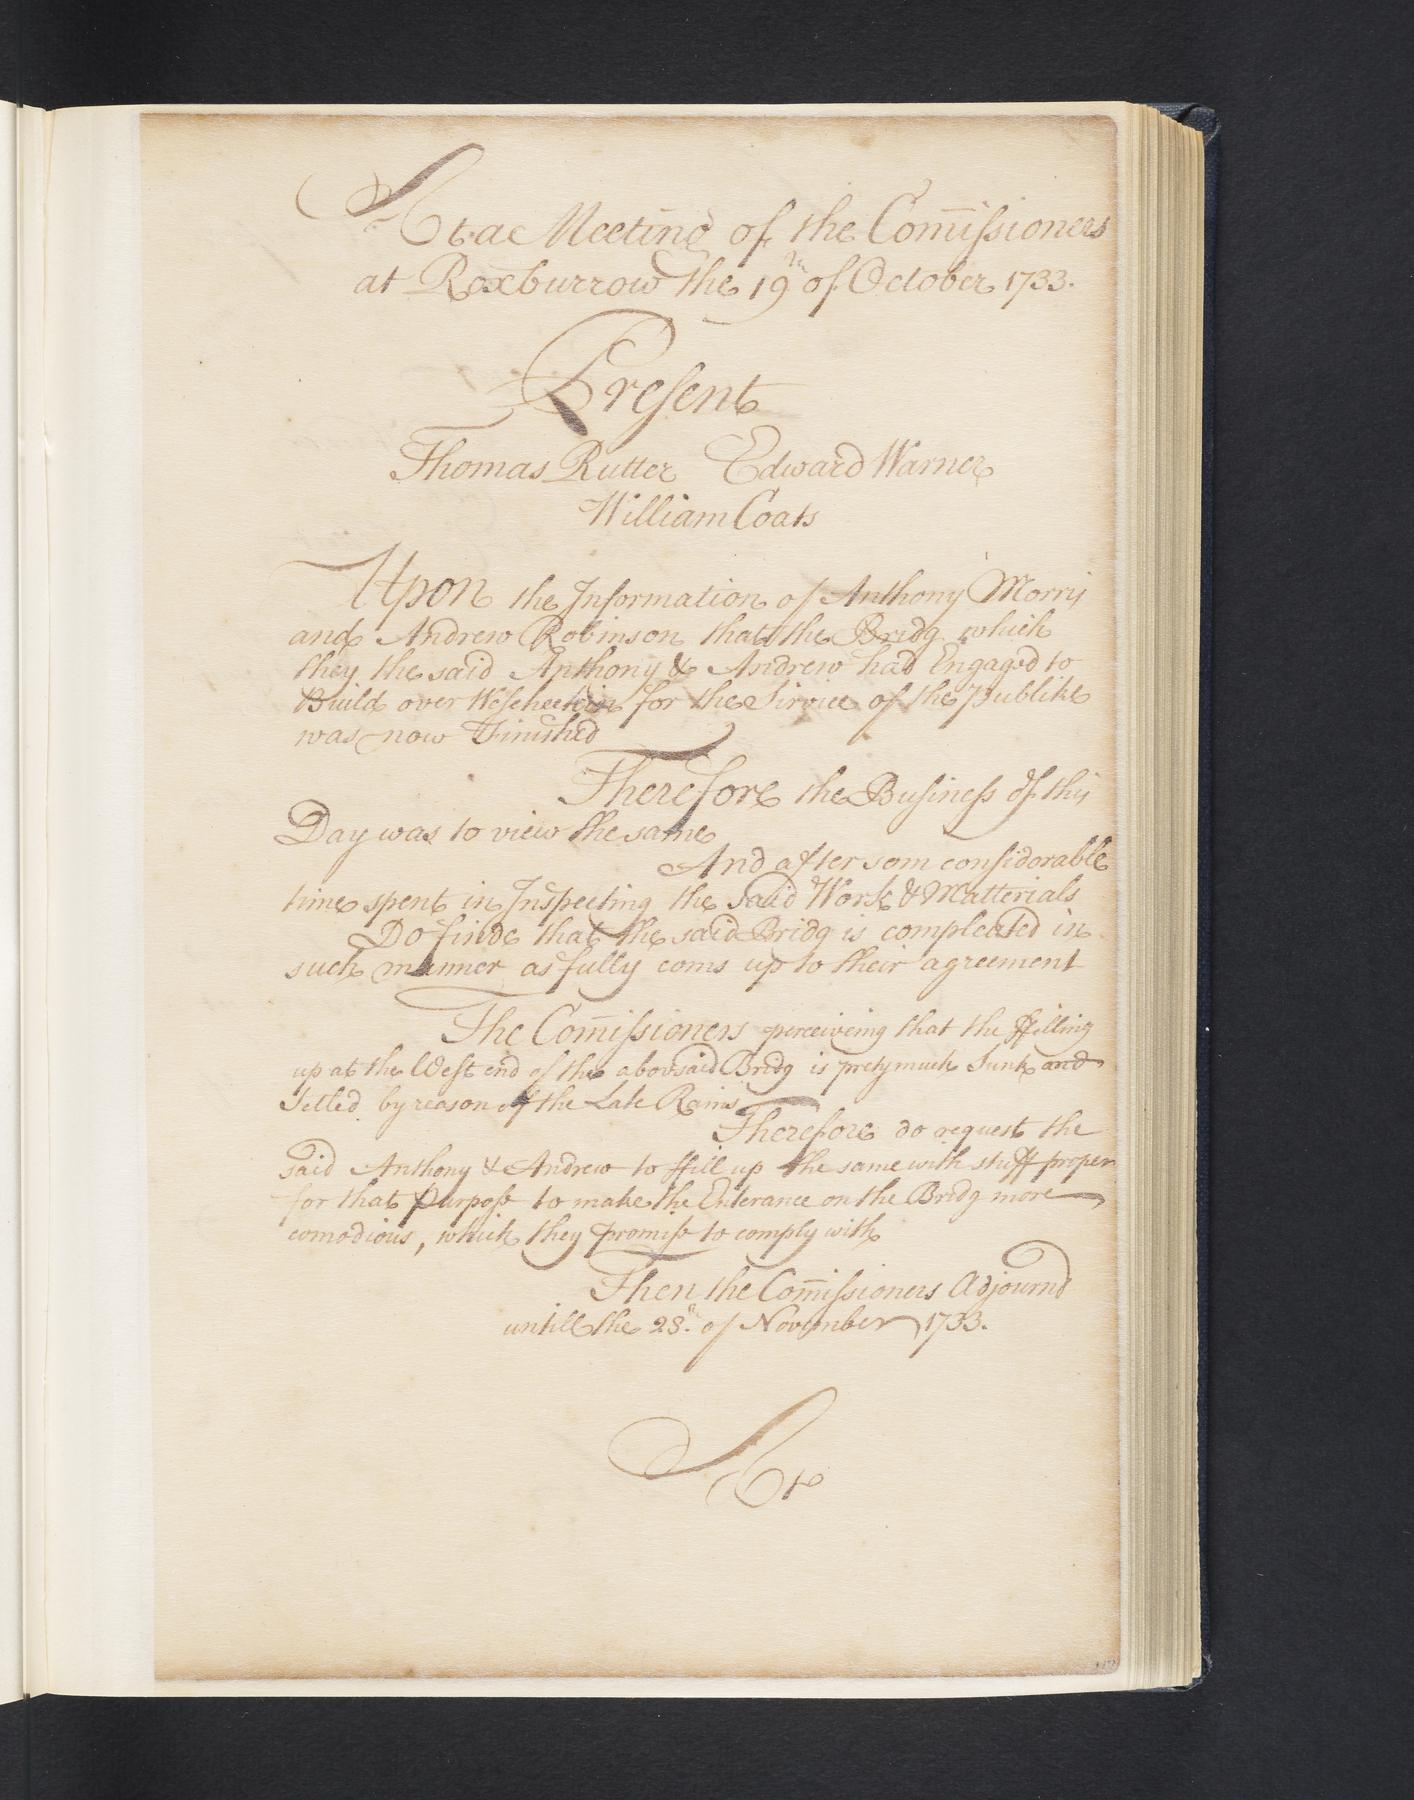 At a Meeting of the Com̅issioners
at Roxburrow the 19th of October 1733.
Present
Thomas Rutter Edward Warner
William Coats
Upon the Information of Anthony Morris
and Andrew Robinson that the Bridg which
they the said Anthony & Andrew had Engaged to
Build over for the Sirvice of the Publike
was now Finished
Therefore the Business of this
Day was to view the same
And after som considorable
time spent in Inspecting the said Work & Matterials
Do finde that the said Bridg is compleated in
such manner as fully coms up to their agreement
The Com̅issioners perceiveing that the ffilling
up at the West end of the abovsaid Bridg is prety much Sunk and
Setled by reason of the Late Rains
Therefore do request the
said Anthony & Andrew to ffill up the same with stuff proper
for that Purpose to make the Enterance on the Bridg more
comodious, which they promise to comply with
Then the Com̅issioners Adjournd
untill the 28th of November 1733.
At